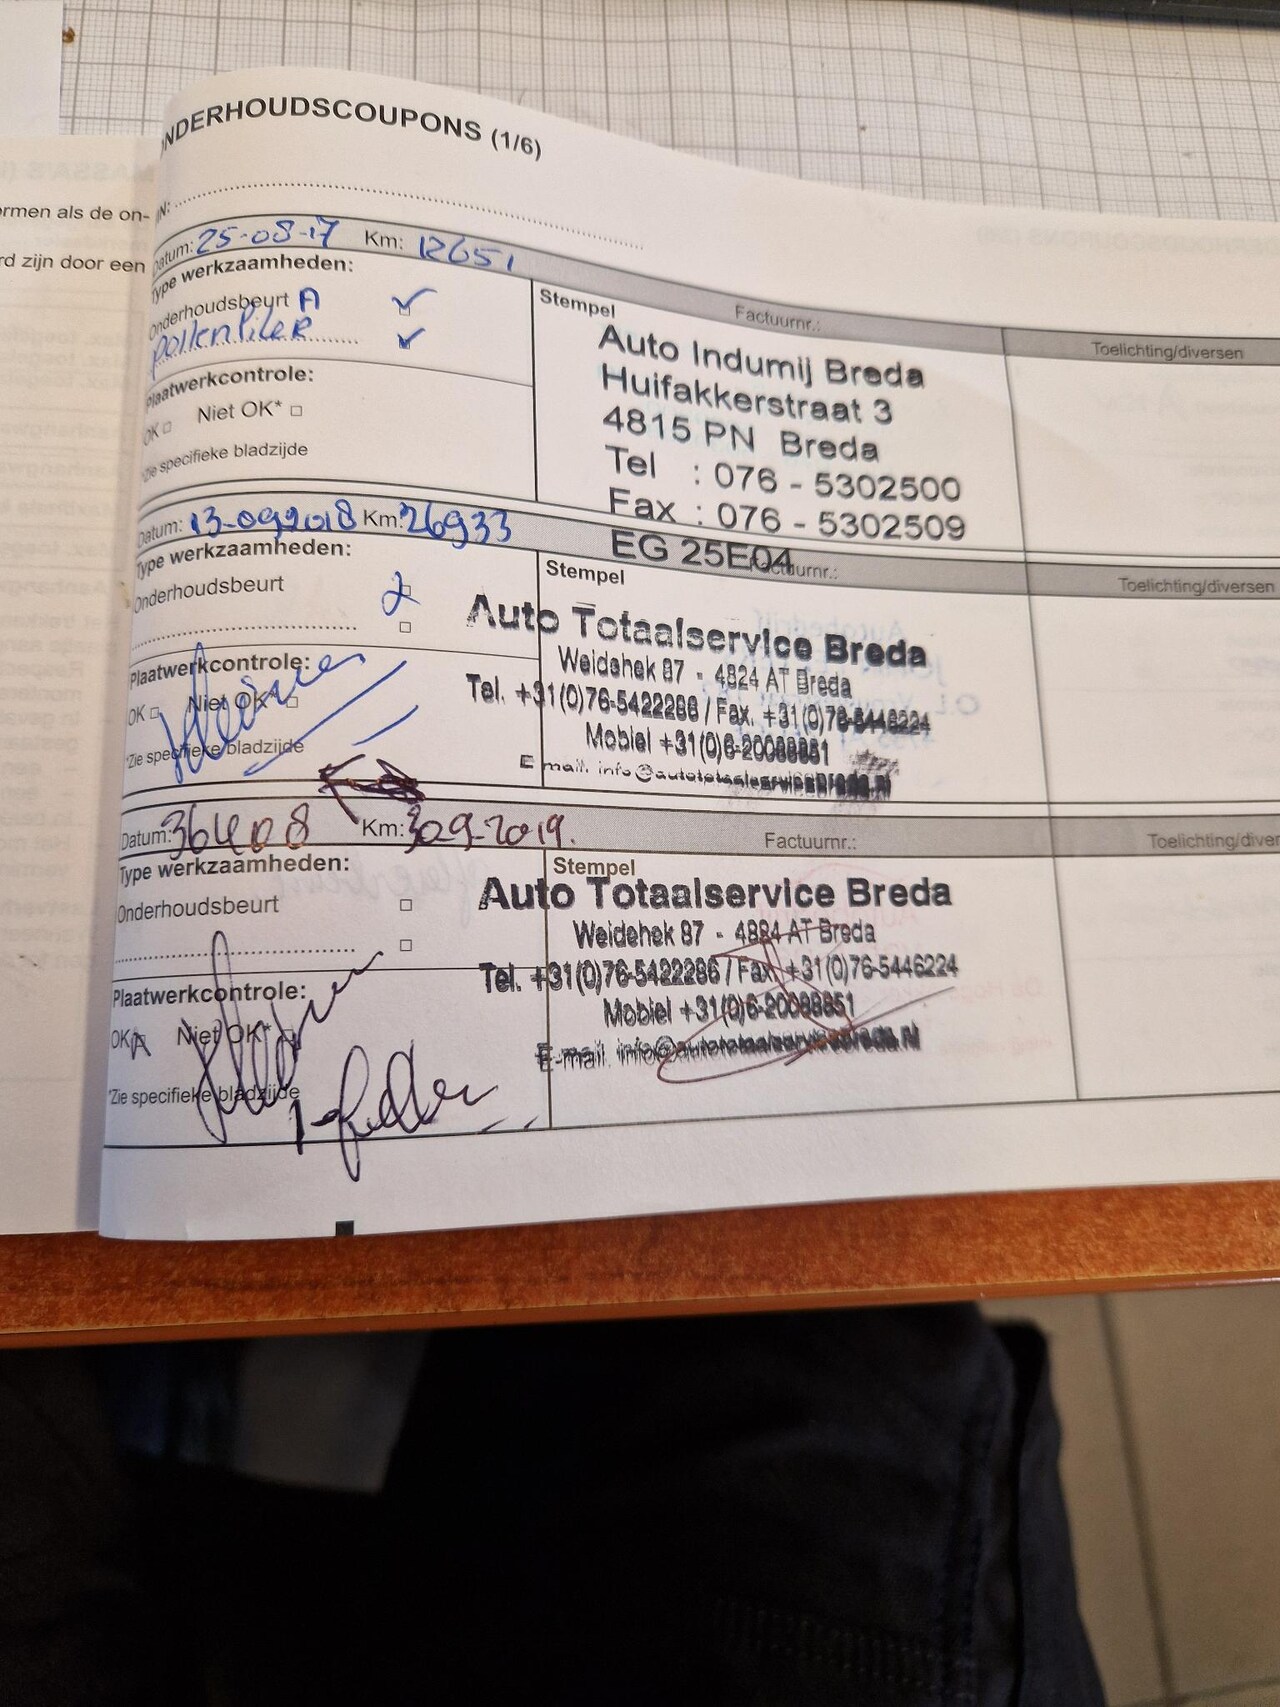 NDERHOUDSCOUPONS (1/6)
rmen als de on-
rd zijn door een
IN:
Datum: 25-08-17 Km: 12651
Type werkzaamheden:
Onderhoudsbeurt A
pollenfilter
Plaatwerkcontrole:
OK Niet OK*
*Zie specifieke bladzijde
Stempel Factuurnr.:
Toelichting/diversen
Auto Indumij Breda
Huifakkerstraat 3
4815 PN Breda
Tel : 076 - 5302500
Fax : 076 - 5302509
EG 25E04
Datum: 13-092018 Km: 26933
Type werkzaamheden:
Onderhoudsbeurt
Plaatwerkcontrole:
OK Niet OK*
*Zie specifieke bladzijde
Stempel Factuurnr.:
Toelichting/diversen
Auto Totaalservice Breda
Weidehek 87 - 4824 AT Breda
Tel. +31(0)76-5422286 / Fax. +31(0)76-5446224
Mobiel +31(0)6-20088851
E-mail. info@autototaalservicebreda.nl
Datum: 36408 Km: 309-2019.
Type werkzaamheden:
Onderhoudsbeurt
Plaatwerkcontrole:
OK Niet OK*
*Zie specifieke bladzijde
Factuurnr.:
Toelichting/diver
Stempel
Auto Totaalservice Breda
Weidehek 87 - 4824 AT Breda
Tel. +31(0)76-5422286 / Fax. +31(0)76-5446224
Mobiel +31(0)6-20088851
E-mail. info@autototaalservicebreda.nl